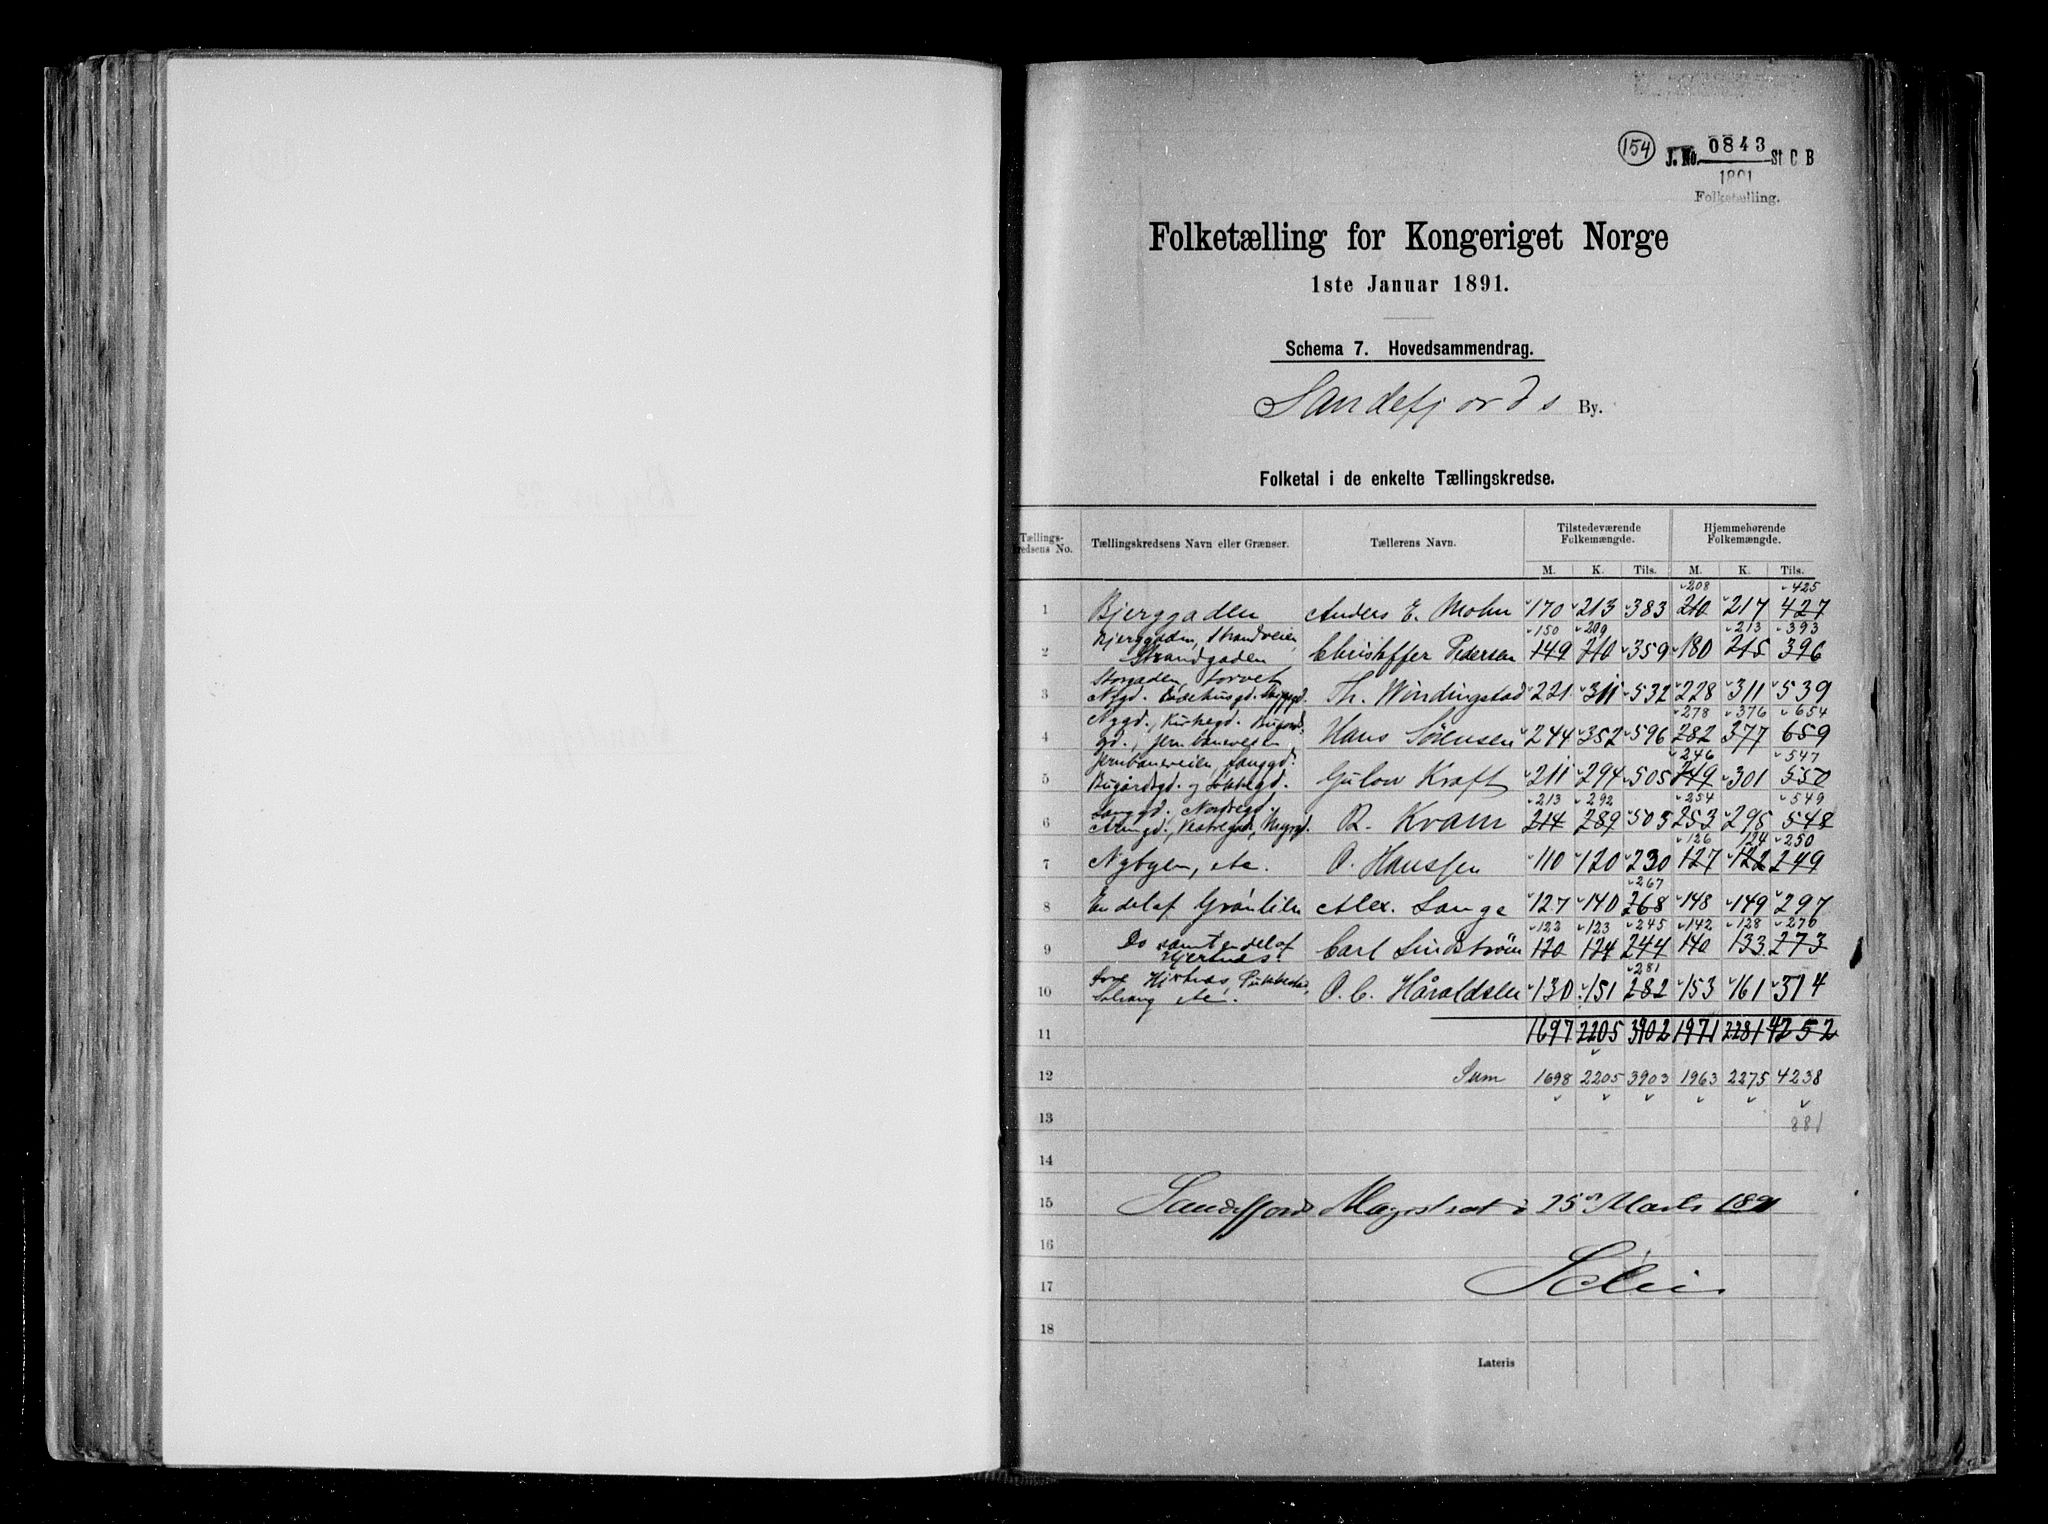 154
J. No. 0843 St C B
1891
Folketælling.
Folketælling for Kongeriget Norge
1ste Januar 1891.
Schema 7. Hovedsammendrag.
Sandefjords By.
Folketal i de enkelte Tællingskredse.
Tællings-kredsens No. Tællingskredsens Navn eller Grænser. Tællerens Navn. Tilstedeværende Folkemængde. Hjemmehørende Folkemængde.
M. K. Tils. M. K. Tils.
208 425
1 Bjerggaden Anders E. Mohn 170 213 383 210 217 427
Bjerggaden, Strandveien, 150 209 213 393
2 Strandgaden Christoffer Pedersen 149 210 359 180 215 396
Storgaden, Torvet
3 Nygd. Th. Windingstad 221 311 532 228 311 539
Nygd., Kirkegd. 278 376 654
4 gd., Jernbaneveien, Hans Sörensen 244 352 596 282 377 659
Jernbaneveien, Langgd. 246 547
5 Bugårdsgd. og Gulow Kraft 211 294 505 249 301 550
Langgd., Nordregd., 213 292 254 549
6 B. Kvam 214 289 503 253 295 548
126 124 250
7 Nybyen, etc. O. Hanssen 110 120 230 127 122 249
267
8 En del af Grönlilen Alex. Lange 127 140 268 148 149 297
122 123 245 142 128 270
9 Do samt en del af Hjertnæs. Carl Lindström 120 124 244 140 133 273
281
10 Solvang etc. O. C. Håraldsen 130 151 282 153 161 314
11 1697 2205 3902 1971 2281 4252
12 Sum 1698 2205 3903 1963 2275 4238
13 881
14
15 Sandefjords Magistrat, 25de Marts 1891
16
17
18
Lateris